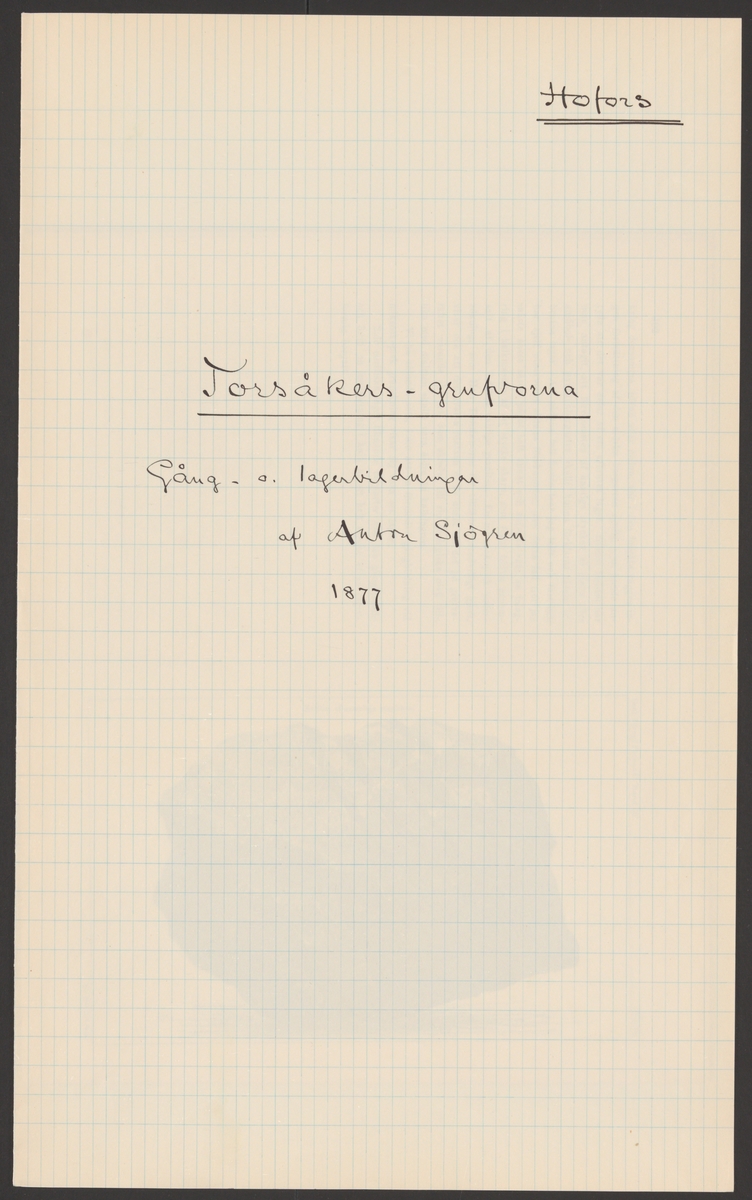 Hofors
Torsåkers - grufvorna
Gång - o. lagerbildningar
af Anton Sjögren
1877